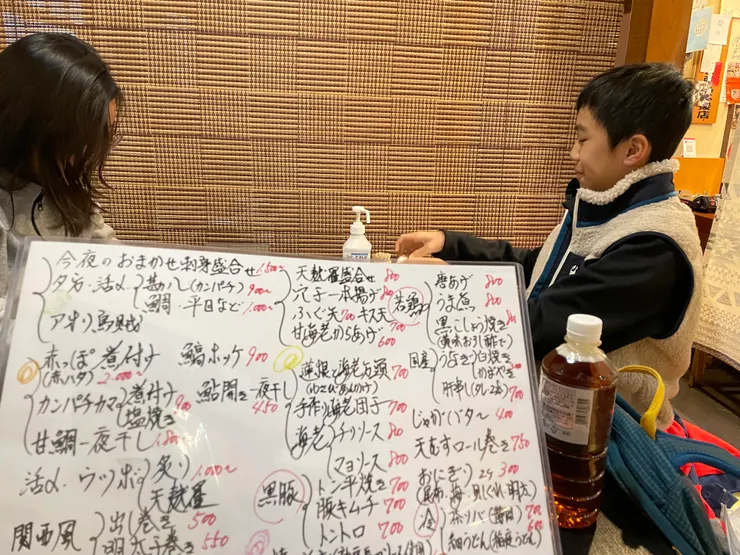 今夜のおまかせ刺身盛合せ 1,500〜
夕方・活〆
勘八(カンパチ) 900〜
鯛・平目など 1,000〜
アオリ烏賊
赤っぽ煮付け
(赤ハタ) 2,000〜
縞ホッケ 900
カンパチカマ
煮付け
塩焼き 900
鮎開き一夜干し 450
甘鯛一夜干し
活〆・ウツボ
炙り
天麩羅
1,000〜
関西風
出し巻き 500
明太子巻き 550
天麩羅盛合せ 800
穴子一本揚げ 800
ふぐ天 700 キス天 700
甘海老からあげ 600
蓮根と海老万頭 700
手作り海老団子 700
海老
チリソース 800
マヨソース 800
黒豚
トン平焼き 700
豚キムチ 700
トントロ 700
若鶏
唐あげ 800
うま煮 800
黒こしょう焼き
国産
うなぎ
白焼き
かばやき
肝串し
700
じゃがバター 400
天むすロール巻き 750
おにぎり 2ケ 300
冷
茶そば
細うどん(稲庭うどん)